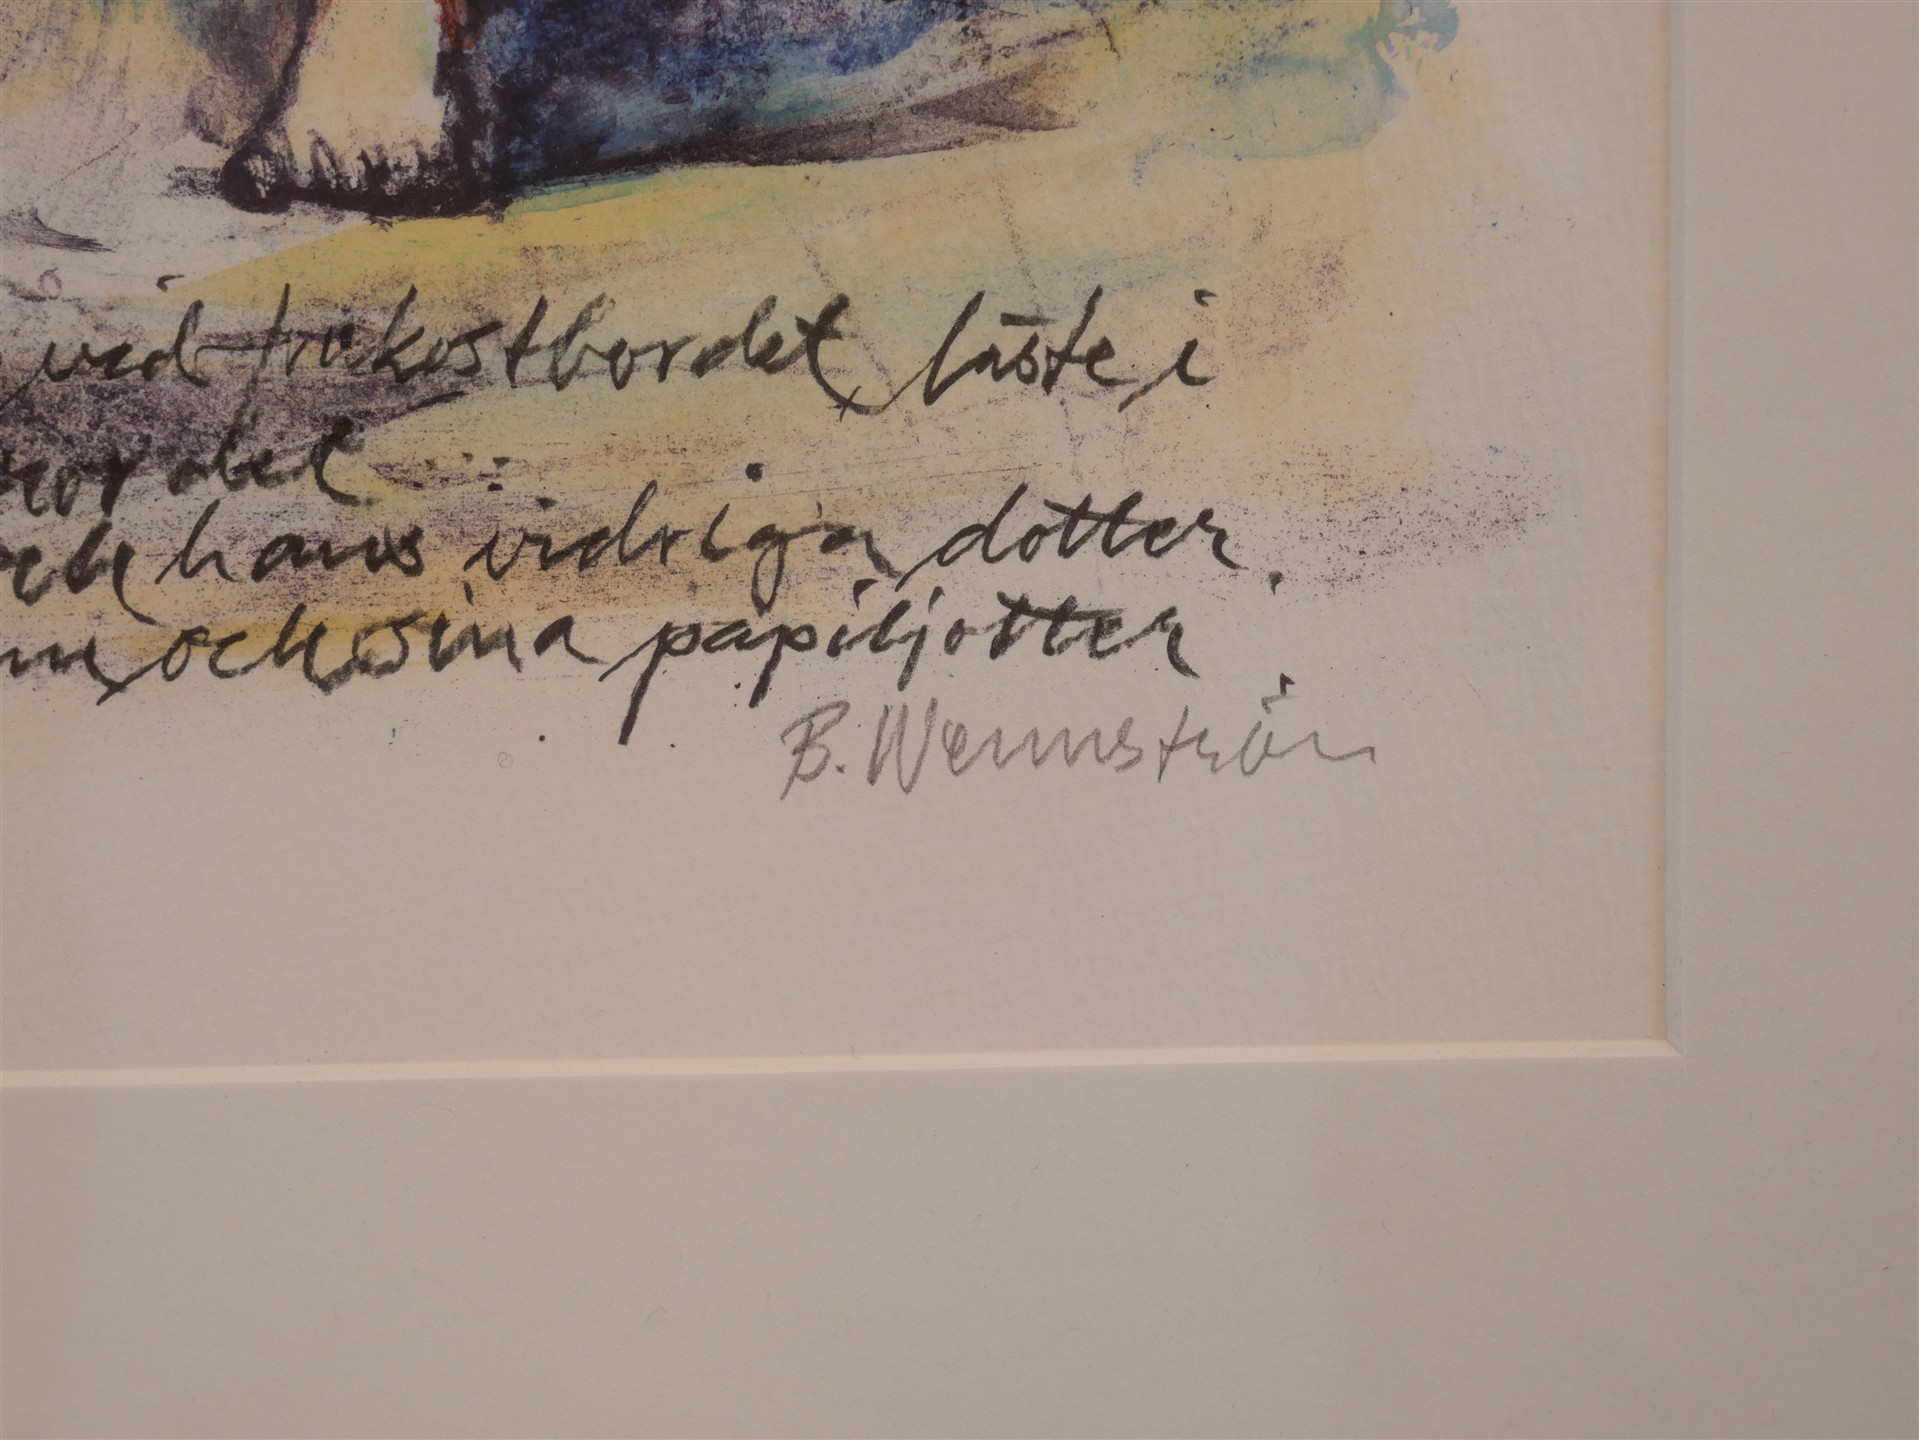 vid frukostbordet läste i
ordet
och hans vidriga dotter.
och sina papiljotter
B. Wennström